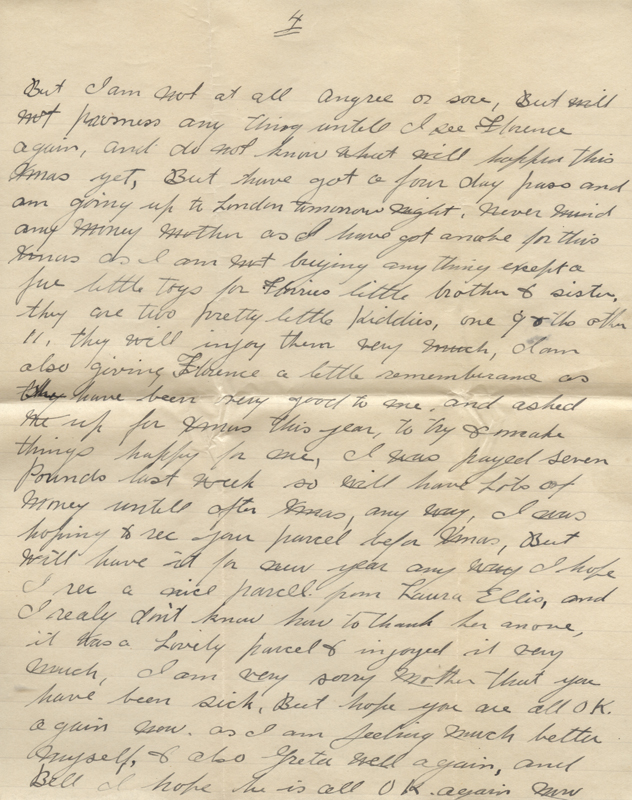 4
But I am not at all angree or sore, But will
not promess any thing untell I see Florence
again, and do not know what will happen this
Xmas yet, But have got a four day pass and
am going up to London tomorrow night. Never mind
any money Mother as I have got anofe for this
Xmas as I am not buying any thing except a
few little toys for little brother & sister,
they are two pretty little Kiddies, one 9 & the other
11, they will injoy them very much, I am
also giving Florence a little rememberance as
they have been very good to me, and asked
me up for Xmas this year, to try & make
things happy for me, I was payed seven
Pounds last week so will have Lots of
money untell after Xmas, any way, I was
hoping to rec your parcel befor Xmas, But
will have it for new year any way I hope
I rec a nice parcel from Laura Ellis, and
I realy don't know how to thank her anofe,
it was a Lovely parcel & injoyed it very
much, I am very sorry Mother that you
have been sick, But hope you are all O K.
again now. as I am feeling much better
myself, & also Greta well again, and
Bell I hope he is all O K. again now